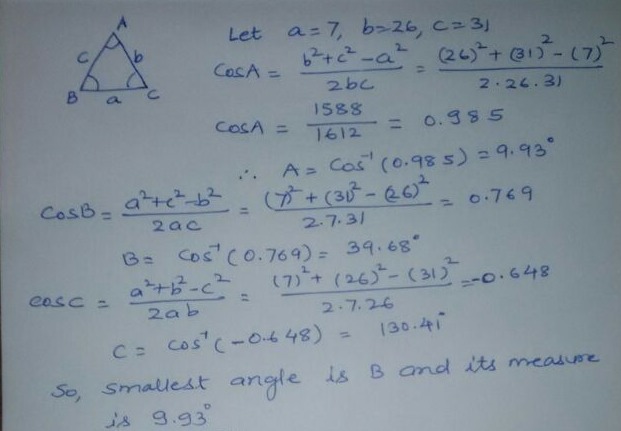 A
c b
B a C
Let a=7, b=26, c=31
CosA = (b²+c²-a²)/(2bc) = ((26)²+(31)²-(7)²)/(2·26·31)
CosA = 1588/1612 = 0.985
∴ A = Cos⁻¹(0.985) = 9.93°
CosB = (a²+c²-b²)/(2ac) = ((7)²+(31)²-(26)²)/(2·7·31) = 0.769
B = Cos⁻¹(0.769) = 39.68°
cosc = (a²+b²-c²)/(2ab) = ((7)²+(26)²-(31)²)/(2·7·26) = -0.648
C = cos⁻¹(-0.648) = 130.41°
So, smallest angle is B and its measure
is 9.93°